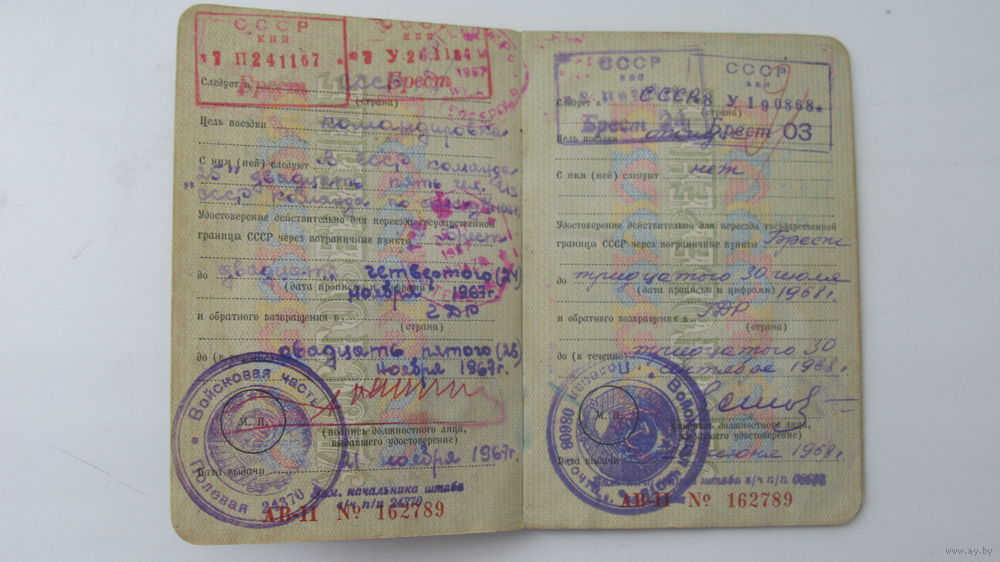 СССР
КПП
П 241167
Брест
У 261167
Брест
Следует в СССР
(страна)
Цель поездки командировка
С ним (ней) следуют в СССР команда
"25" двадцать пять чел. из
СССР команда по
Удостоверение действительно для переезда государственной
границы СССР через пограничные пункты Брест
до двадцать четвертого (24)
(дата прописью и цифрами)
ноября 1967г.
и обратного возвращения в ГДР
(страна)
до (в течение) двадцать пятого (25)
ноября 1967г.
М. П.
(подпись должностного лица,
выдавшего удостоверение)
Дата выдачи 21 ноября 1967г.
Войсковая часть
Полевая 24370
Зам. начальника штаба
в/ч п/п 24370
АВ-II № 162789
СССР
КПП
Брест
СССР
КПП
У 100868
Брест 03
Следует в СССР
(страна)
Цель поездки отпуск
С ним (ней) следуют нет
Удостоверение действительно для переезда государственной
границы СССР через пограничные пункты Брест
до тридцатого 30 июля
(дата прописью и цифрами) 1968г.
и обратного возвращения в ГДР
(страна)
до (в течение) тридцатого 30
сентября 1968г.
М. П.
(подпись должностного лица,
выдавшего удостоверение)
Дата выдачи июня 1968г.
штаба в/ч п/п
АВ-II № 162789
www.ay.by